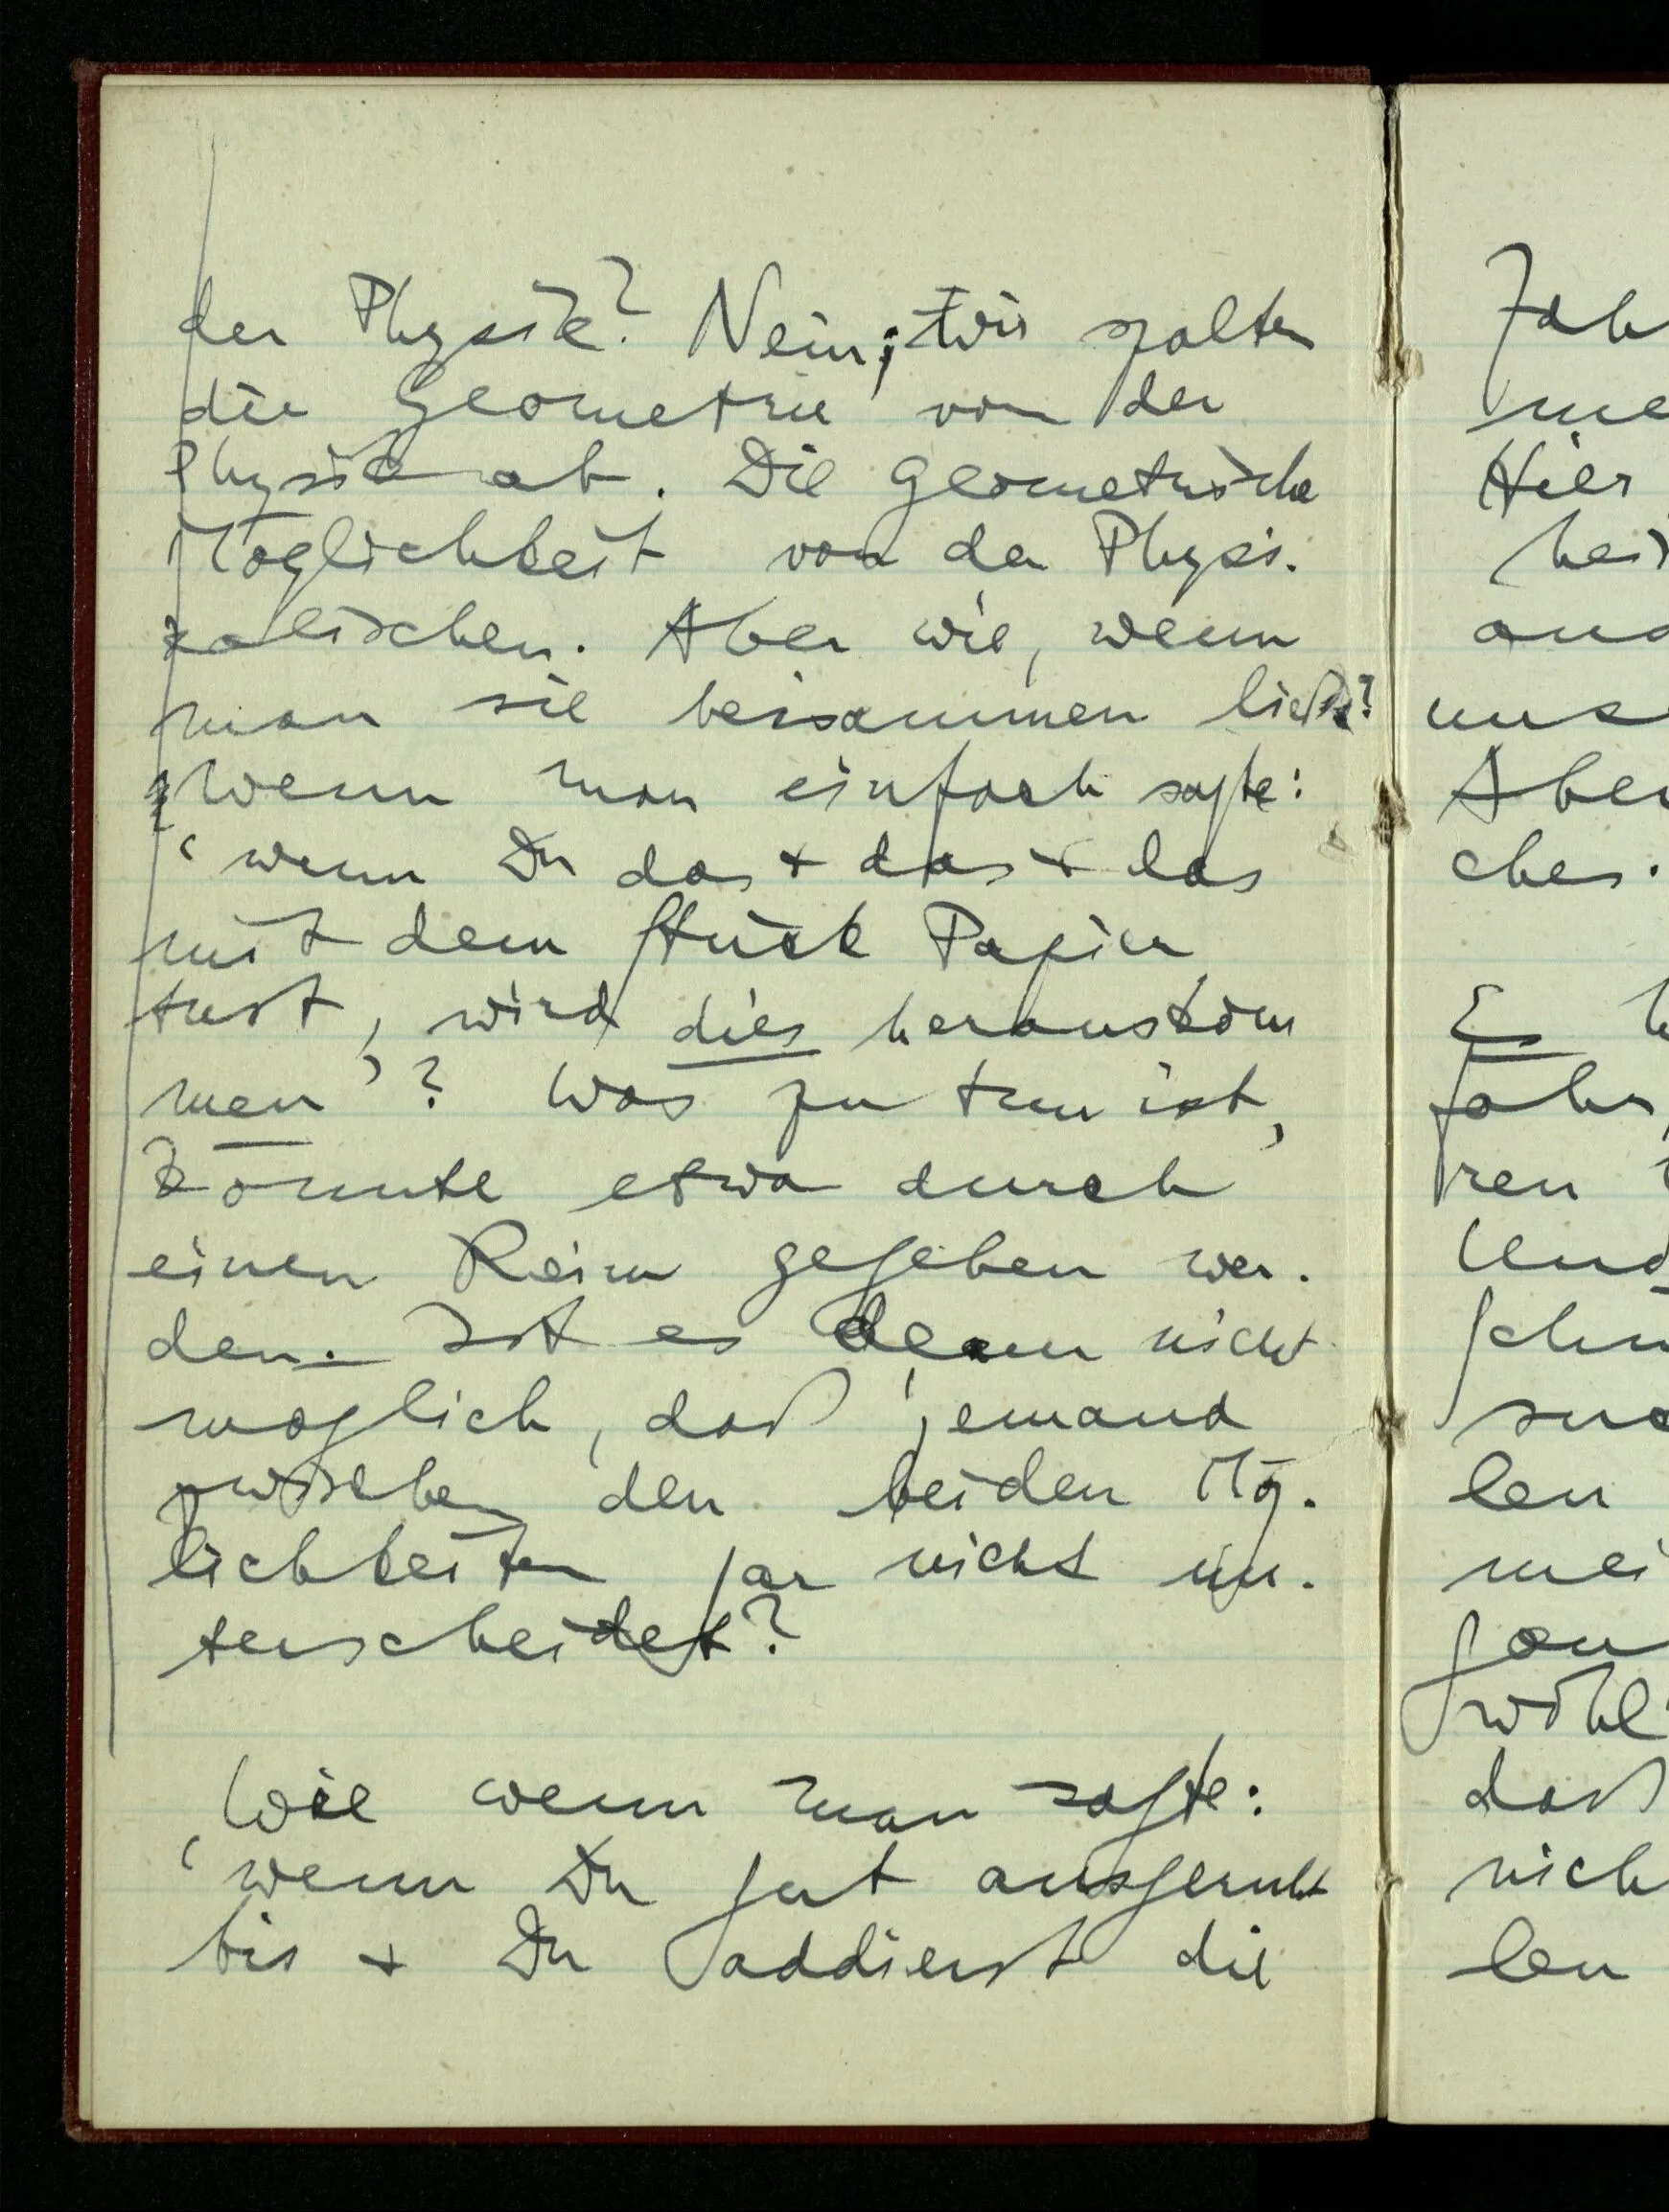 der Physik? Nein; wir spalten
die Geometrie von der
Physik ab. Die geometrische
Möglichkeit von der Physi-
kalischen. Aber wie, wenn
man sie beisammen ließe?
Wenn man einfach sagte:
‘wenn Du das + das + das
mit dem Stück Papier
tust, wird dies herauskom
men’? Was zu tun ist,
könnte etwa durch
einen Reim gegeben wer-
den. Ist es denn nicht
möglich, daß jemand
zwischen den beiden Mög-
lichkeiten gar nicht un-
terscheidet?
Wie wenn man sagte:
‘wenn Du gut ausgeruht
bis + Du addierst die
Hier
Aber
ches.
Es
fahr,
ren
len
daß
len